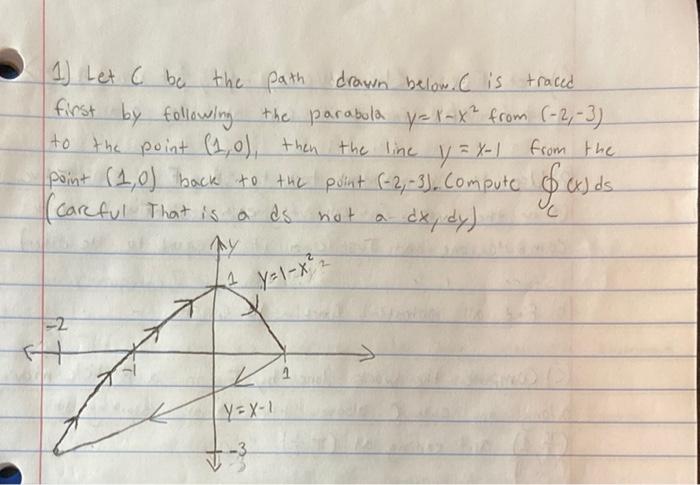 1) Let C be the path drawn below. C is traced
first by following the parabola y=1-x² from (-2,-3)
to the point (1,0), then the line y=x-1 from the
point (1,0) back to the point (-2,-3). Compute ∮ (x) ds
C
(Careful That is a ds not a dx, dy)
y
1
y=1-x²
-2
-1
1
y=x-1
-3